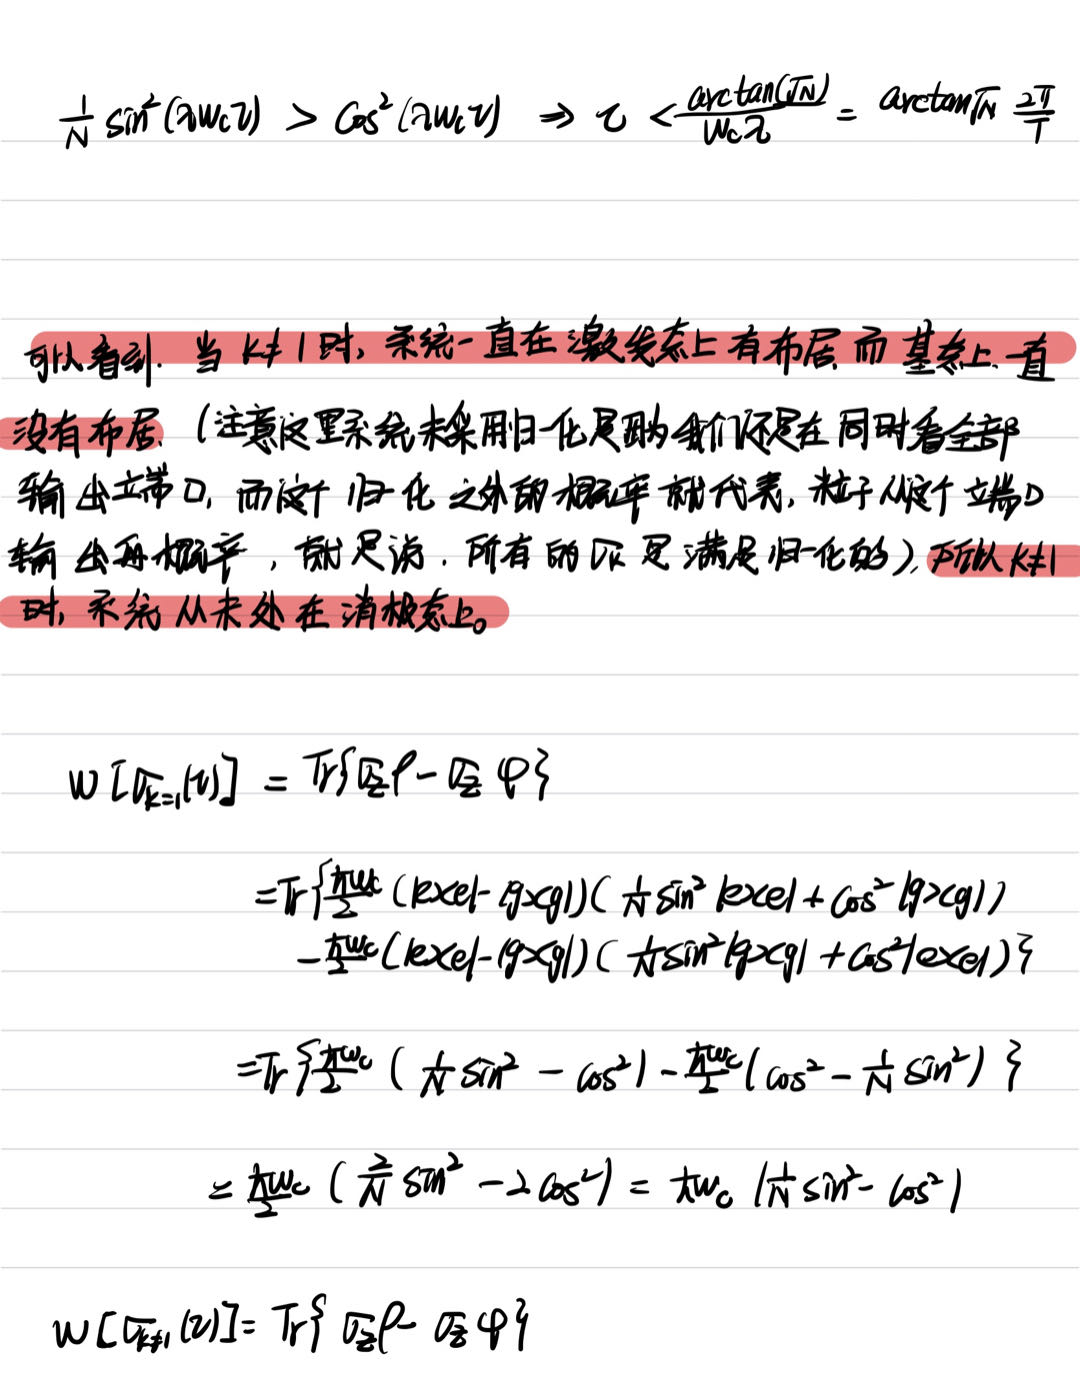 1/N sin²(λωcτ) > Cos²(λωcτ) ⇒ τ < arctan(√N)/ωcλ = arctan√N 2π/T
可以看到. 当 k≠1时, 系统一直在激发态上有布居 而 基态上一直
没有布居. (注意这里系统未采用归一化是因为我们还是在同时看全部
输出端口, 而这个归一化之外的概率就代表, 粒子从这个端口
输出的概率, 就是说. 所有的σk是满足归一化的), 所以k≠1
时, 系统从未处在消极态上。
W[σk=1(τ)] = Tr{σzρ - σzφ}
=Tr{ħωc/2 (|e><e|-|g><g|)(1/N sin²|e><e| + Cos²|g><g|)
-ħωc/2(|e><e|-|g><g|)(1/N sin²|g><g| + Cos²|e><e|)}
=Tr{ħωc/2 (1/N sin² - Cos²) - ħωc/2(Cos² - 1/N sin²)}
= ħωc/2 (2/N sin² - 2Cos²) = ħωc (1/N sin² - Cos²)
W[σk≠1(τ)]= Tr{σzρ- σzφ}